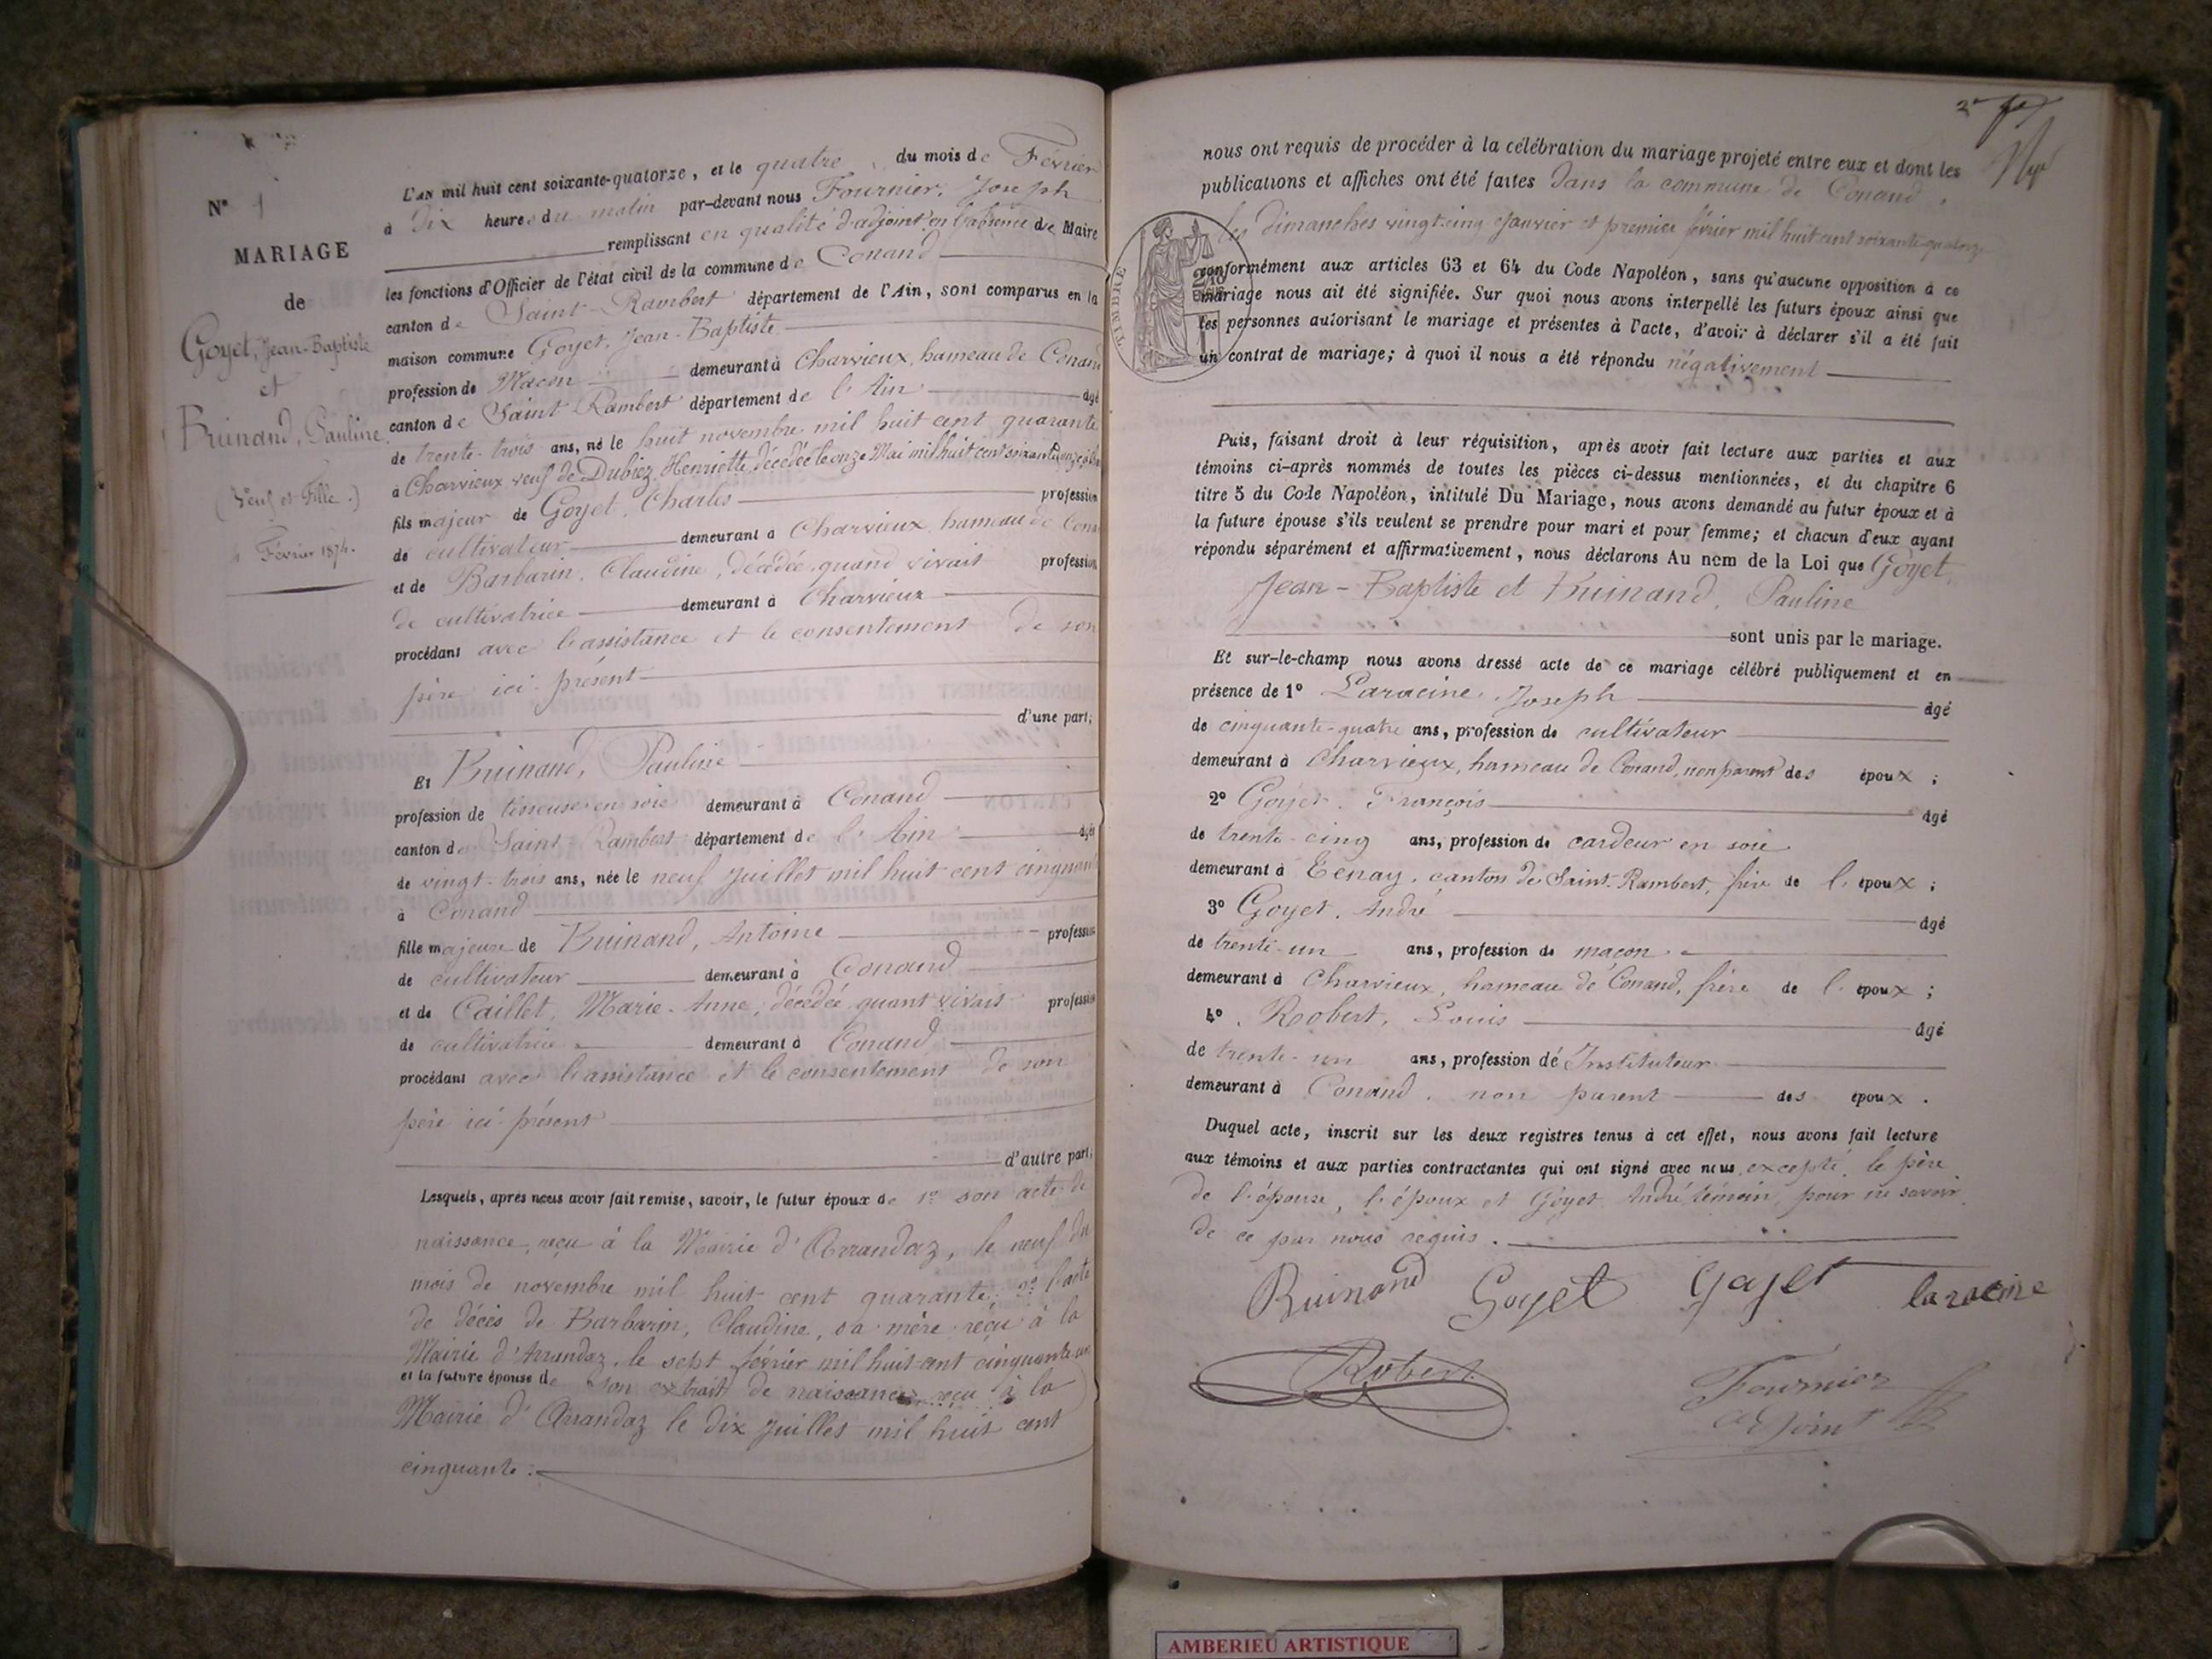 N° 1
MARIAGE
de
Goyet, Jean-Baptiste
et
Buinand, Pauline
(Veuf et Fille.)
Février 1874.
L'AN mil huit cent soixante-quatorze, et le quatre du mois de Février
à Dix heures du matin par-devant nous Fournier, Joseph
remplissant en qualité d'adjoint en l'absence de Maire
les fonctions d'Officier de l'état civil de la commune de Conand
canton de Saint-Rambert département de l'Ain, sont comparus en la
maison commune Goyet, Jean-Baptiste
profession de Maçon demeurant à Charvieux, hameau de Conand
canton de Saint Rambert département de l'Ain âgé
de trente-trois ans, né le huit novembre mil huit cent quarante
à Charvieux veuf de Dubiez, Henriette, décédée le onze Mai mil huit cent soixante onze
fils majeur de Goyet, Charles profession
de cultivateur demeurant à Charvieux, hameau de Conand
et de Barbarin, Claudine, décédée, quand vivait profession
de cultivatrice demeurant à Charvieux
procédant avec l'assistance et le consentement de son
père ici présent
d'une part;
Et Buinand, Pauline
profession de tisseuse en soie demeurant à Conand
canton de Saint-Rambert département de l'Ain âgée
de vingt-trois ans, née le neuf Juillet mil huit cent cinquante
à Conand
fille majeure de Buinand, Antoine profession
de cultivateur demeurant à Conand
et de Caillet, Marie-Anne, décédée, quant vivait profession
de cultivatrice demeurant à Conand
procédant avec l'assistance et le consentement de son
père ici présent
d'autre part;
Lesquels, après nous avoir fait remise, savoir, le futur époux de 1° son acte de
naissance, reçu à la Mairie d'Arrandaz, le neuf du
mois de novembre mil huit cent quarante; 2° l'acte
de décès de Barbarin, Claudine, sa mère reçu à la
Mairie d'Arrandaz, le sept février mil huit cent cinquante-un
et la future épouse de son extrait de naissance reçu à la
Mairie d'Arrandaz le dix Juillet mil huit cent
cinquante :
nous ont requis de procéder à la célébration du mariage projeté entre eux et dont les
publications et affiches ont été faites Dans la commune de Conand,
les Dimanches vingt-cinq Janvier et premier février mil huit cent soixante-quatorze
TIMBRE
conformément aux articles 63 et 64 du Code Napoléon, sans qu'aucune opposition à ce
mariage nous ait été signifiée. Sur quoi nous avons interpellé les futurs époux ainsi que
les personnes autorisant le mariage et présentes à l'acte, d'avoir à déclarer s'il a été fait
un contrat de mariage; à quoi il nous a été répondu négativement
Puis, faisant droit à leur réquisition, après avoir fait lecture aux parties et aux
témoins ci-après nommés de toutes les pièces ci-dessus mentionnées, et du chapitre 6
titre 5 du Code Napoléon, intitulé Du Mariage, nous avons demandé au futur époux et à
la future épouse s'ils veulent se prendre pour mari et pour femme; et chacun d'eux ayant
répondu séparément et affirmativement, nous déclarons Au nom de la Loi que Goyet,
Jean-Baptiste et Buinand, Pauline
sont unis par le mariage.
Et sur-le-champ nous avons dressé acte de ce mariage célébré publiquement et en
présence de 1° Laracine, Joseph âgé
de cinquante-quatre ans, profession de cultivateur
demeurant à Charvieux, hameau de Conand, non parent des époux ;
2° Goyet, François âgé
de trente-cinq ans, profession de cardeur en soie
demeurant à Tenay, canton de Saint-Rambert, frère de l'époux ;
3° Goyet, André âgé
de trente-un ans, profession de maçon
demeurant à Charvieux, hameau de Conand, frère de l'époux ;
4° Robert, Louis âgé
de trente-un ans, profession de Instituteur
demeurant à Conand, non parent des époux.
Duquel acte, inscrit sur les deux registres tenus à cet effet, nous avons fait lecture
aux témoins et aux parties contractantes qui ont signé avec nous, excepté le père
de l'épouse, l'époux et Goyet, André, témoin, pour ne savoir
de ce par nous requis.
Buinand Goyet Gojet laracine
Robert
Fournier
adjoint
AMBERIEU ARTISTIQUE